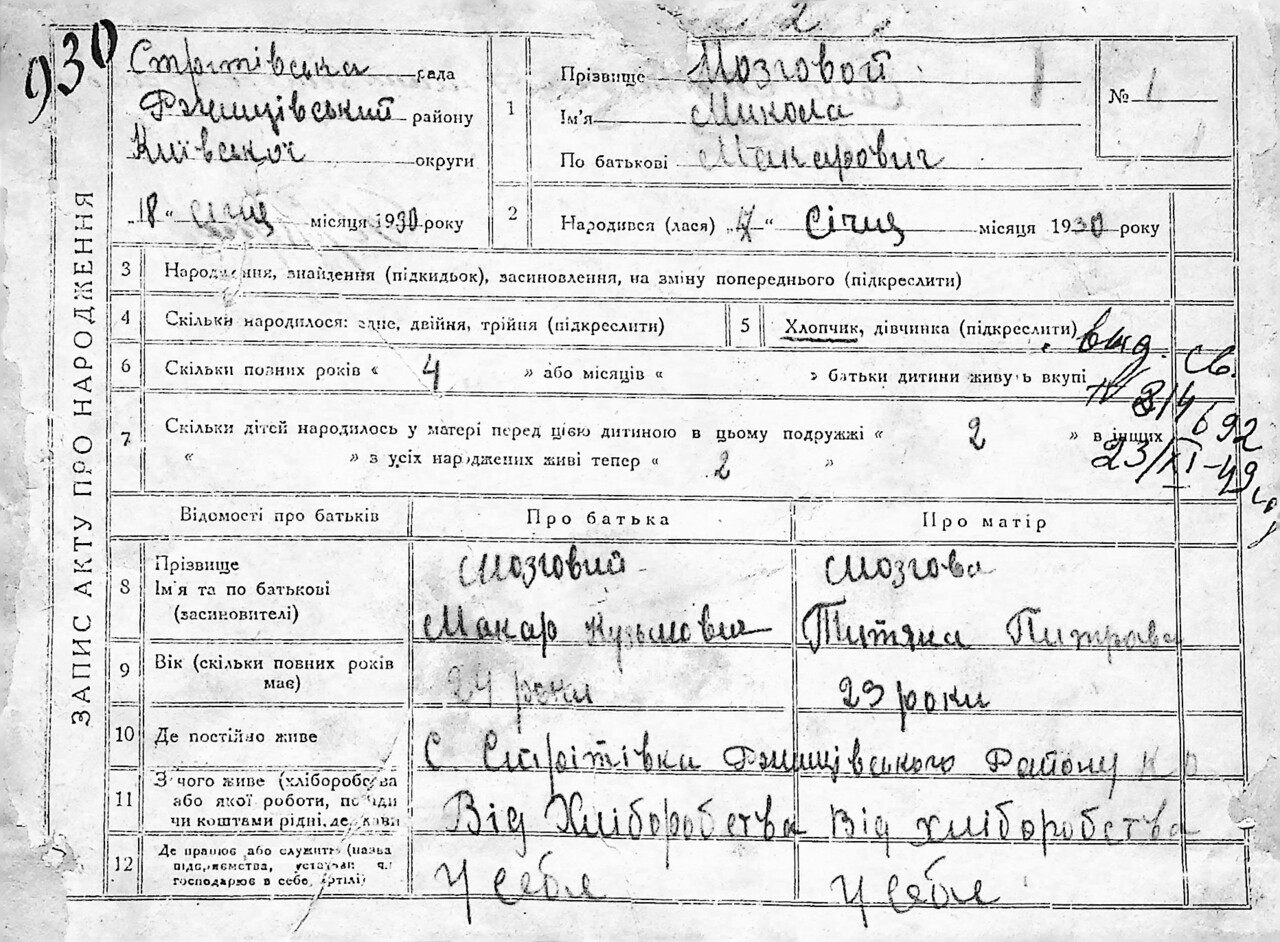 930
2
Стрітівська рада
Ржищівський району
Київської округи
„18“ січня місяця 1930 року
1 Прізвище Мозговой
Ім'я Микола
По батькові Макарович
№ 1
2 Народився (лася) „ “ Січня місяця 1930 року
ЗАПИС АКТУ ПРО НАРОДЖЕННЯ
3 Народження, знайдення (підкидьок), засиновлення, на зміну попереднього (підкреслити)
4 Скільки народилося: одне, двійня, трійня (підкреслити)
5 Хлопчик, дівчинка (підкреслити)
вид. св.
6 Скільки повних років « 4 » або місяців « » батьки дитини живуть вкупі
7 Скільки дітей народилось у матері перед цією дитиною в цьому подружжі « 2 » в інших
« » з усіх народжених живі тепер « 2 »
23/XI-49
Відомості про батьків Про батька Про матір
8 Прізвище
Ім'я та по батькові
(засиновителі)
Мозговий
Макар Кузьмович
Мозгова
Титяна Питрова
9 Вік (скільки повних років
має)
24 роки
23 роки
10 Де постійно живе
С Стрітівка Ржищівського Району К О
11 З чого живе (хліборобства
або якої роботи, посади
чи коштами рідні, держави
Від Хліборобства
Від хліборобства
12 Де працює або служить (назва
підприємства, установи чи
господарює в себе, артілі)
У себе
У себе